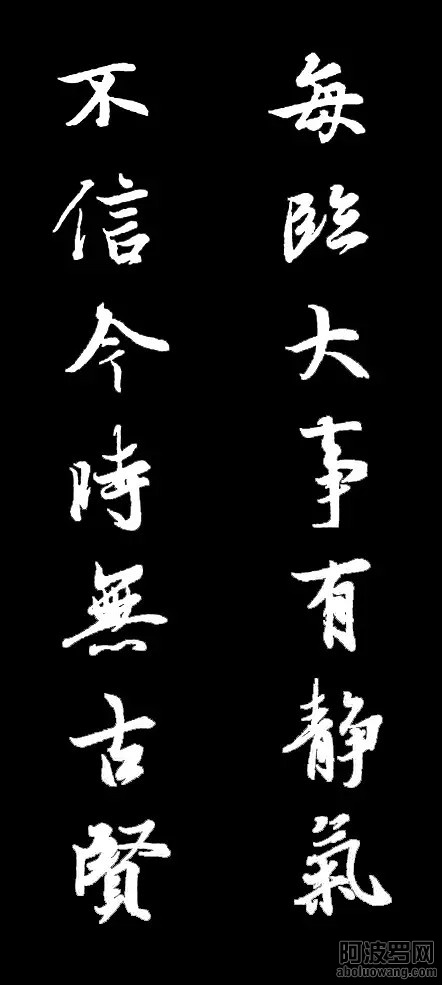 每臨大事有静氣
不信今時無古賢
阿波罗网
aboluowang.com